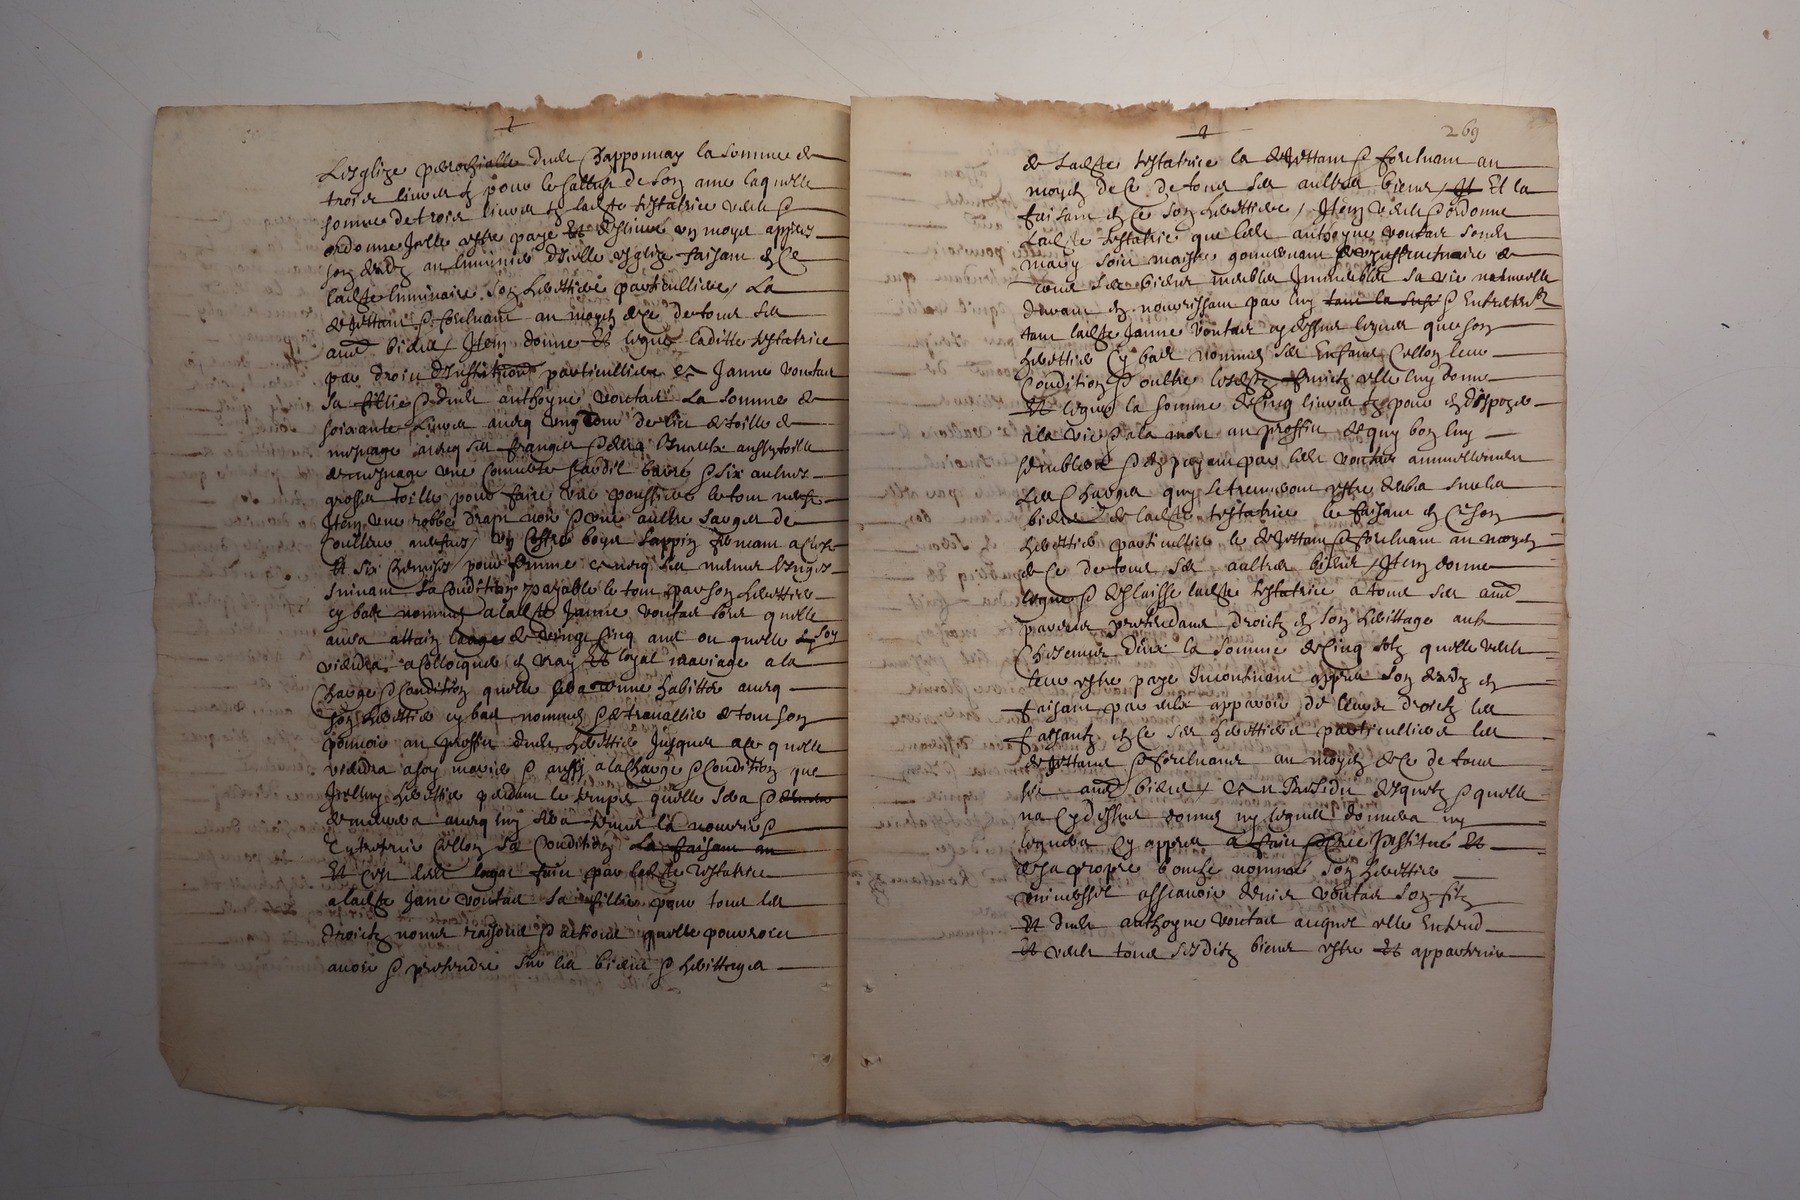 Lesglize parochialle dudt Chapponnay la somme de
trois livres tz pour le sallut de son ame laquelle
somme de trois livres tz ladte testatrice veult &
ordonne Icelle estre paye et deslivre ung moys appres
son decedz au luminier d'Icelle esglize faisant en ce
ladte luminaire son herittiere particulliere / La
dejettant & forcluant au moyen de ce de tous ses
aultr biens / Item donne et legue laditte testatrice
par droict d'Institution particulliere a Janne voutar
sa fillie & dudt anthoyne voutar La somme de
soixante Livres avecq ung de lict de toille de
mesnage avecq ses franges & deux linceulx aussy toille
de mesnage une couverte barre & six aulnes
grosse toille pour faire une poussiere le tout neufz
Item une robbe drapt noir & une aultre sarge de
coulleur / ung coffre boys sappin fermant a clefz
et six chemises pour femme avecq ses menus linges
suivant sa condition payable le tout par son herittier
cy bas nomme a ladte Janne voutar lors quelle
aura attain laage de vingt cinq ans ou quelle
viendra a collocquer en vray et loyal mariage a la
Charge & condition quelle sera tenue habitter avecq
son herittier cy bas nomme & de travallier de tout son
pouvoir au proffit dudt herittier Jusques a ce quelle
viendra a soy marier & aussy a la charge & condition que
herittier pendant le temps quelle sera &
demeurera avecq luy sera tenus la nourrir &
Entretenir sellon sa condition La faisant au
Et C'est ledt legat faict par ladte Testatrice
a ladte Jane voutar sa fillie pour tous les
droictz noms raisons & actions quelle pourroict
avoir & pretendre sur les biens & herittages
269
de ladte testatrice la dejettant & forcluant au
moyen de ce de tous ses aultres biens / Et la
faisant en ce son herittiere / Item veult & ordonne
Ladte testatrice que ledt anthoyne voutar sondt
mary soict maistre gouvernant & usuffructuaire de
tous ses biens meubles Immeubles sa vie naturelle
durant en nourrissant par luy & Entretenir
tant ladte Janne voutar cy dessus leguee que son
herittier cy bas nomme ses Enfans sellon leur
condition & oultre lesdtz fruictz elle luy donne
Et legue la somme de cinq livres tz pour en disposer
a la vie & a la mort au proffit de quy bon luy
semblera & en payant par ledt voutar annuellement
Les Charges quy se treuveront estre deubz sur les
biens de ladte testatrice le faisant en ce son
herittier particullier le dejettant & forcluant au moyen
de ce de tous ses aultres biens / Item donne
legue & deslaisse ladte testatrice a tous ses aultr
parens prethendans droictz en son herittage aulx
Chescungs d'eux la somme de cinq solz quelle veult
leur estre paye Incontinant appres son decedz en
faisant par eulx apparoir de leurs droictz les
faisantz en ce ses herittiers particulliers les
dejettans & forcluans au moyen de ce de tous
ses aultr biens / Et au Residu desquelz & quelle
na Cy dessus donne ny legue donnera ny
leguera Cy appres a faict & cree Institue et
de sa propre bouche nomme son herittier
universel asscavoir denis voutar son filz
Et dudt anthoyne voutar auquel elle Entend
Et veult tous sesditz biens estre et appartenir